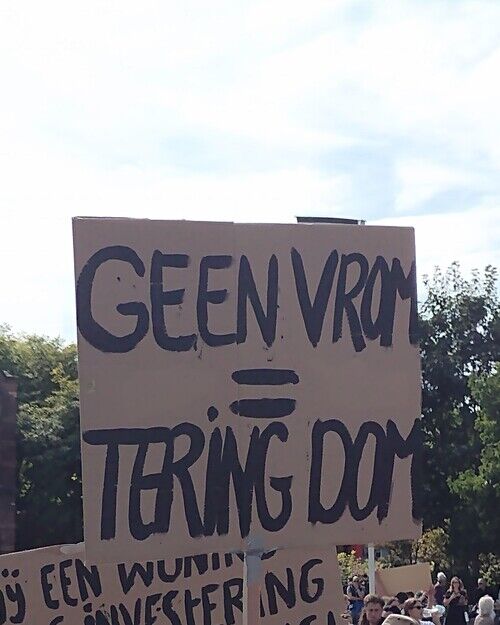 GEEN VROM
=
TERING DOM
EEN WONING
INVESTERING